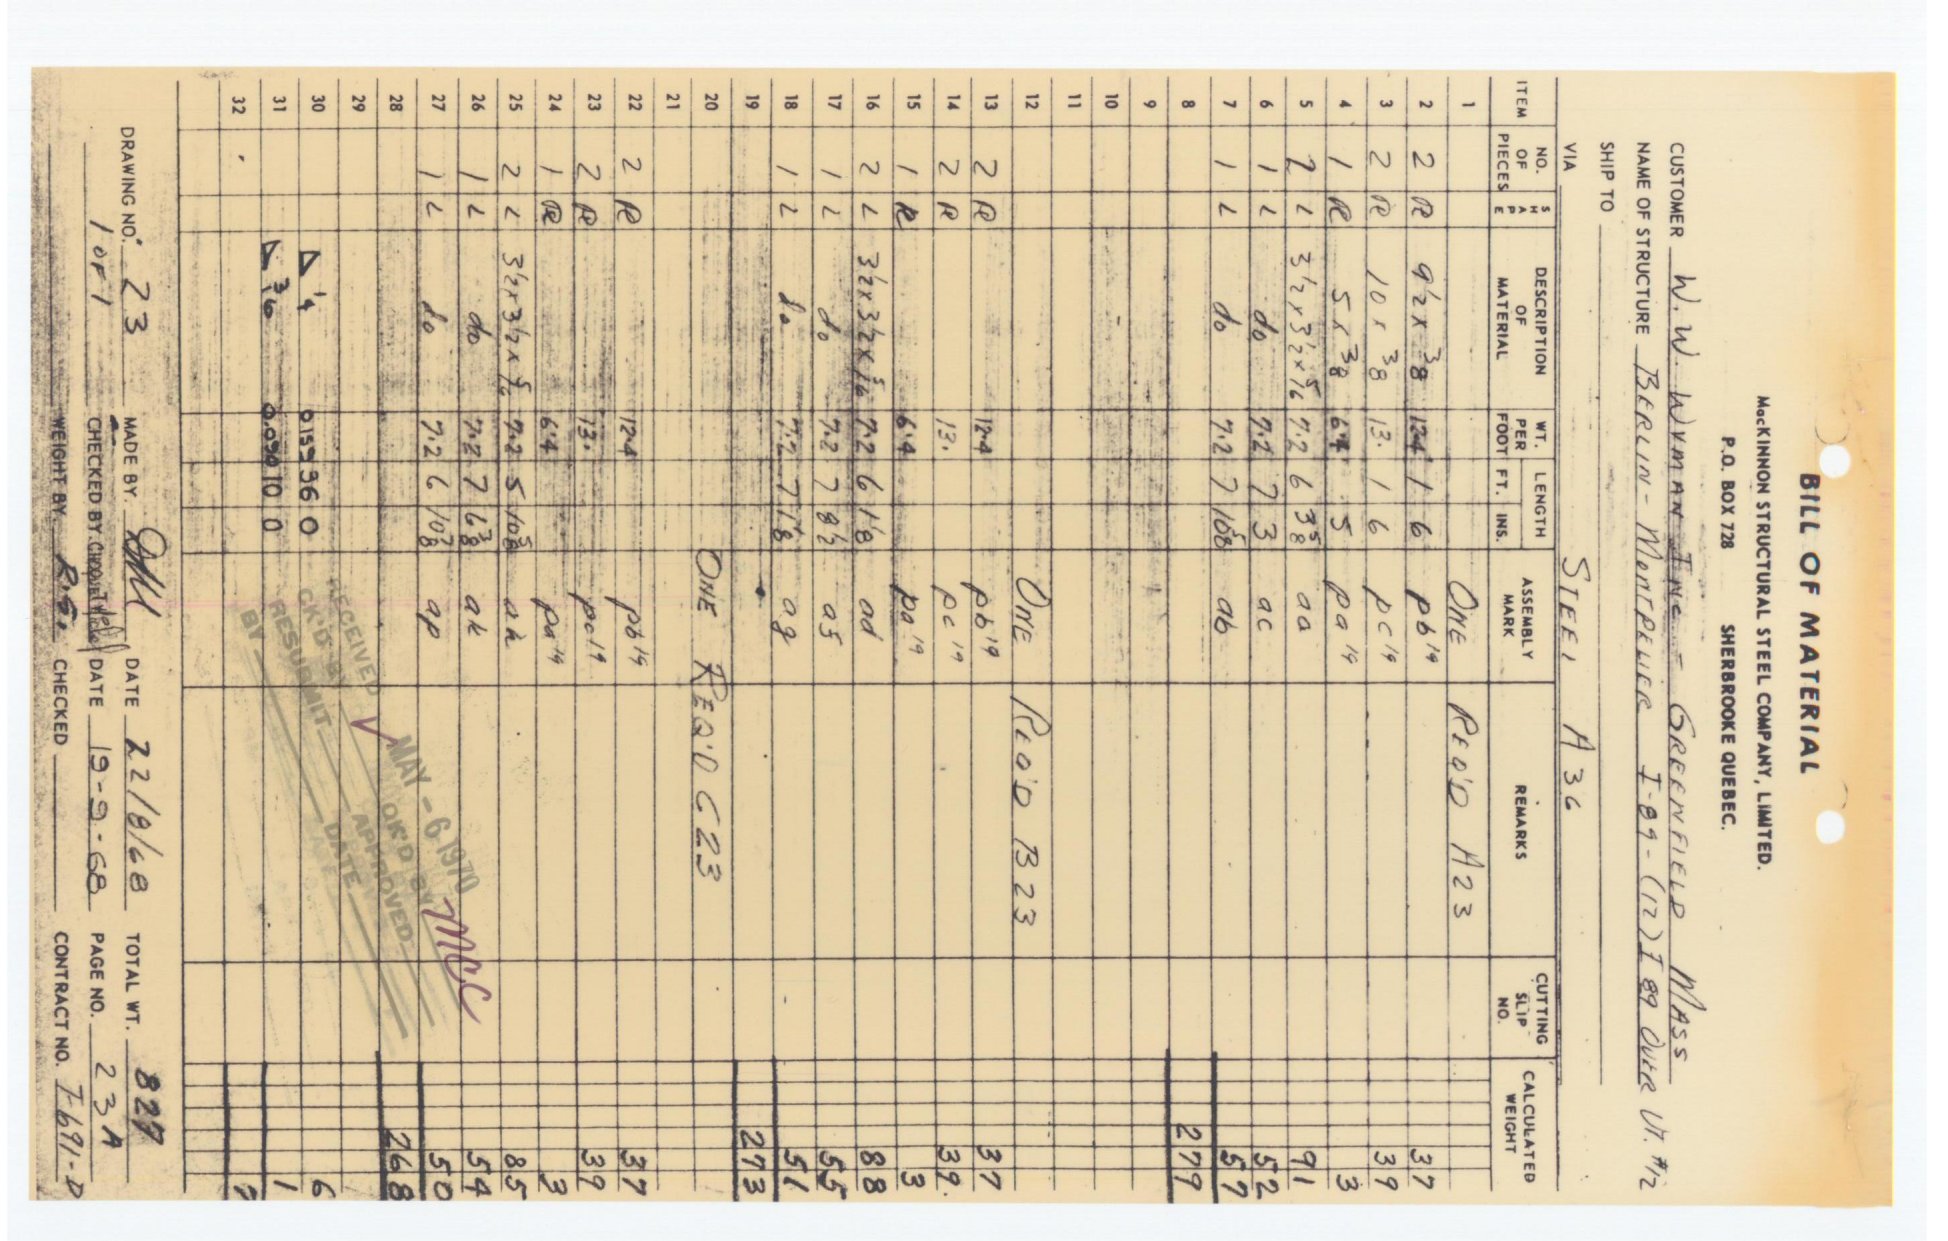 BILL OF MATERIAL
MacKINNON STRUCTURAL STEEL COMPANY, LIMITED.
P.O. BOX 728 SHERBROOKE QUEBEC.
CUSTOMER W. W. WYMAN INC - GREENFIELD MASS
NAME OF STRUCTURE BERLIN - MONTPELIER I-89-(12) I 89 OVER VT. #12
SHIP TO
VIA STEEL A36
ITEM NO. OF PIECES SHAPE DESCRIPTION OF MATERIAL WT. PER FOOT LENGTH FT. INS. ASSEMBLY MARK REMARKS CUTTING SLIP NO. CALCULATED WEIGHT
1 ONE REQ'D A23
2 2 PL 9 1/2 x 3/8 12.4 1 6 pb 19 37
3 2 PL 10 x 3/8 13. 1 6 pc 19 39
4 1 PL 5 x 3/8 6.4 5 pa 19 3
5 2 L 3 1/2 x 3 1/2 x 5/16 7.2 6 3 5/8 aa 91
6 1 L do 7.2 7 3 ac 52
7 1 L do 7.2 7 10 5/8 ab 57
8 279
9
10
11
12 ONE REQ'D B23
13 2 PL 12.4 pb 19 37
14 2 PL 13. pc 19 39.
15 1 PL 6.4 pa 19 3
16 2 L 3 1/2 x 3 1/2 x 5/16 7.2 6 1 1/8 ad 88
17 1 L do 7.2 7 8 1/2 af 55
18 1 L do 7.2 7 1 1/8 ag 51
19 273
20 ONE REQ'D C23
21
22 2 PL 12.4 pb 19 37
23 2 PL 13. pc 19 39
24 1 PL 6.4 pa 19 3
25 2 L 3 1/2 x 3 1/2 x 5/16 7.2 5 10 5/8 ah 85
26 1 L do 7.2 7 6 3/8 ak 54
27 1 L do 7.2 6 10 7/8 ap 50
28 268
29
30 1/4 0.159 36 0 6
31 3/16 0.090 10 0 1
32 7
RECEIVED MAY - 6 1970
CK'D BY OK'D BY MCC
RESUBMIT APPROVED
BY DATE
DRAWING NO. 23 MADE BY. DATE 22/8/68 TOTAL WT. 827
1 OF 1 CHECKED BY. DATE 19-9-68 PAGE NO. 23A
WEIGHT BY. R.S. CHECKED CONTRACT NO. I-691-D